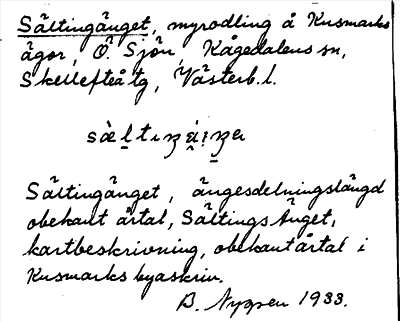 Sältingänget, myrodling å Kusmarks
ägor, Ö. Sjön, Kågedalens sn,
Skellefteå tg, Västerb. l.
Sältingänget, ängesdelningslängd
obekant årtal, Sältings Änget,
kartbeskrivning, obekant årtal i
Kusmarks byaskrin.
B. Nygren 1933.